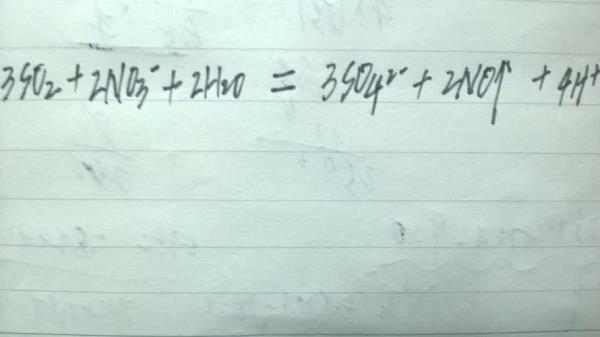 3SO₂ + 2NO₃⁻ + 2H₂O = 3SO₄²⁻ + 2NO↑ + 4H⁺